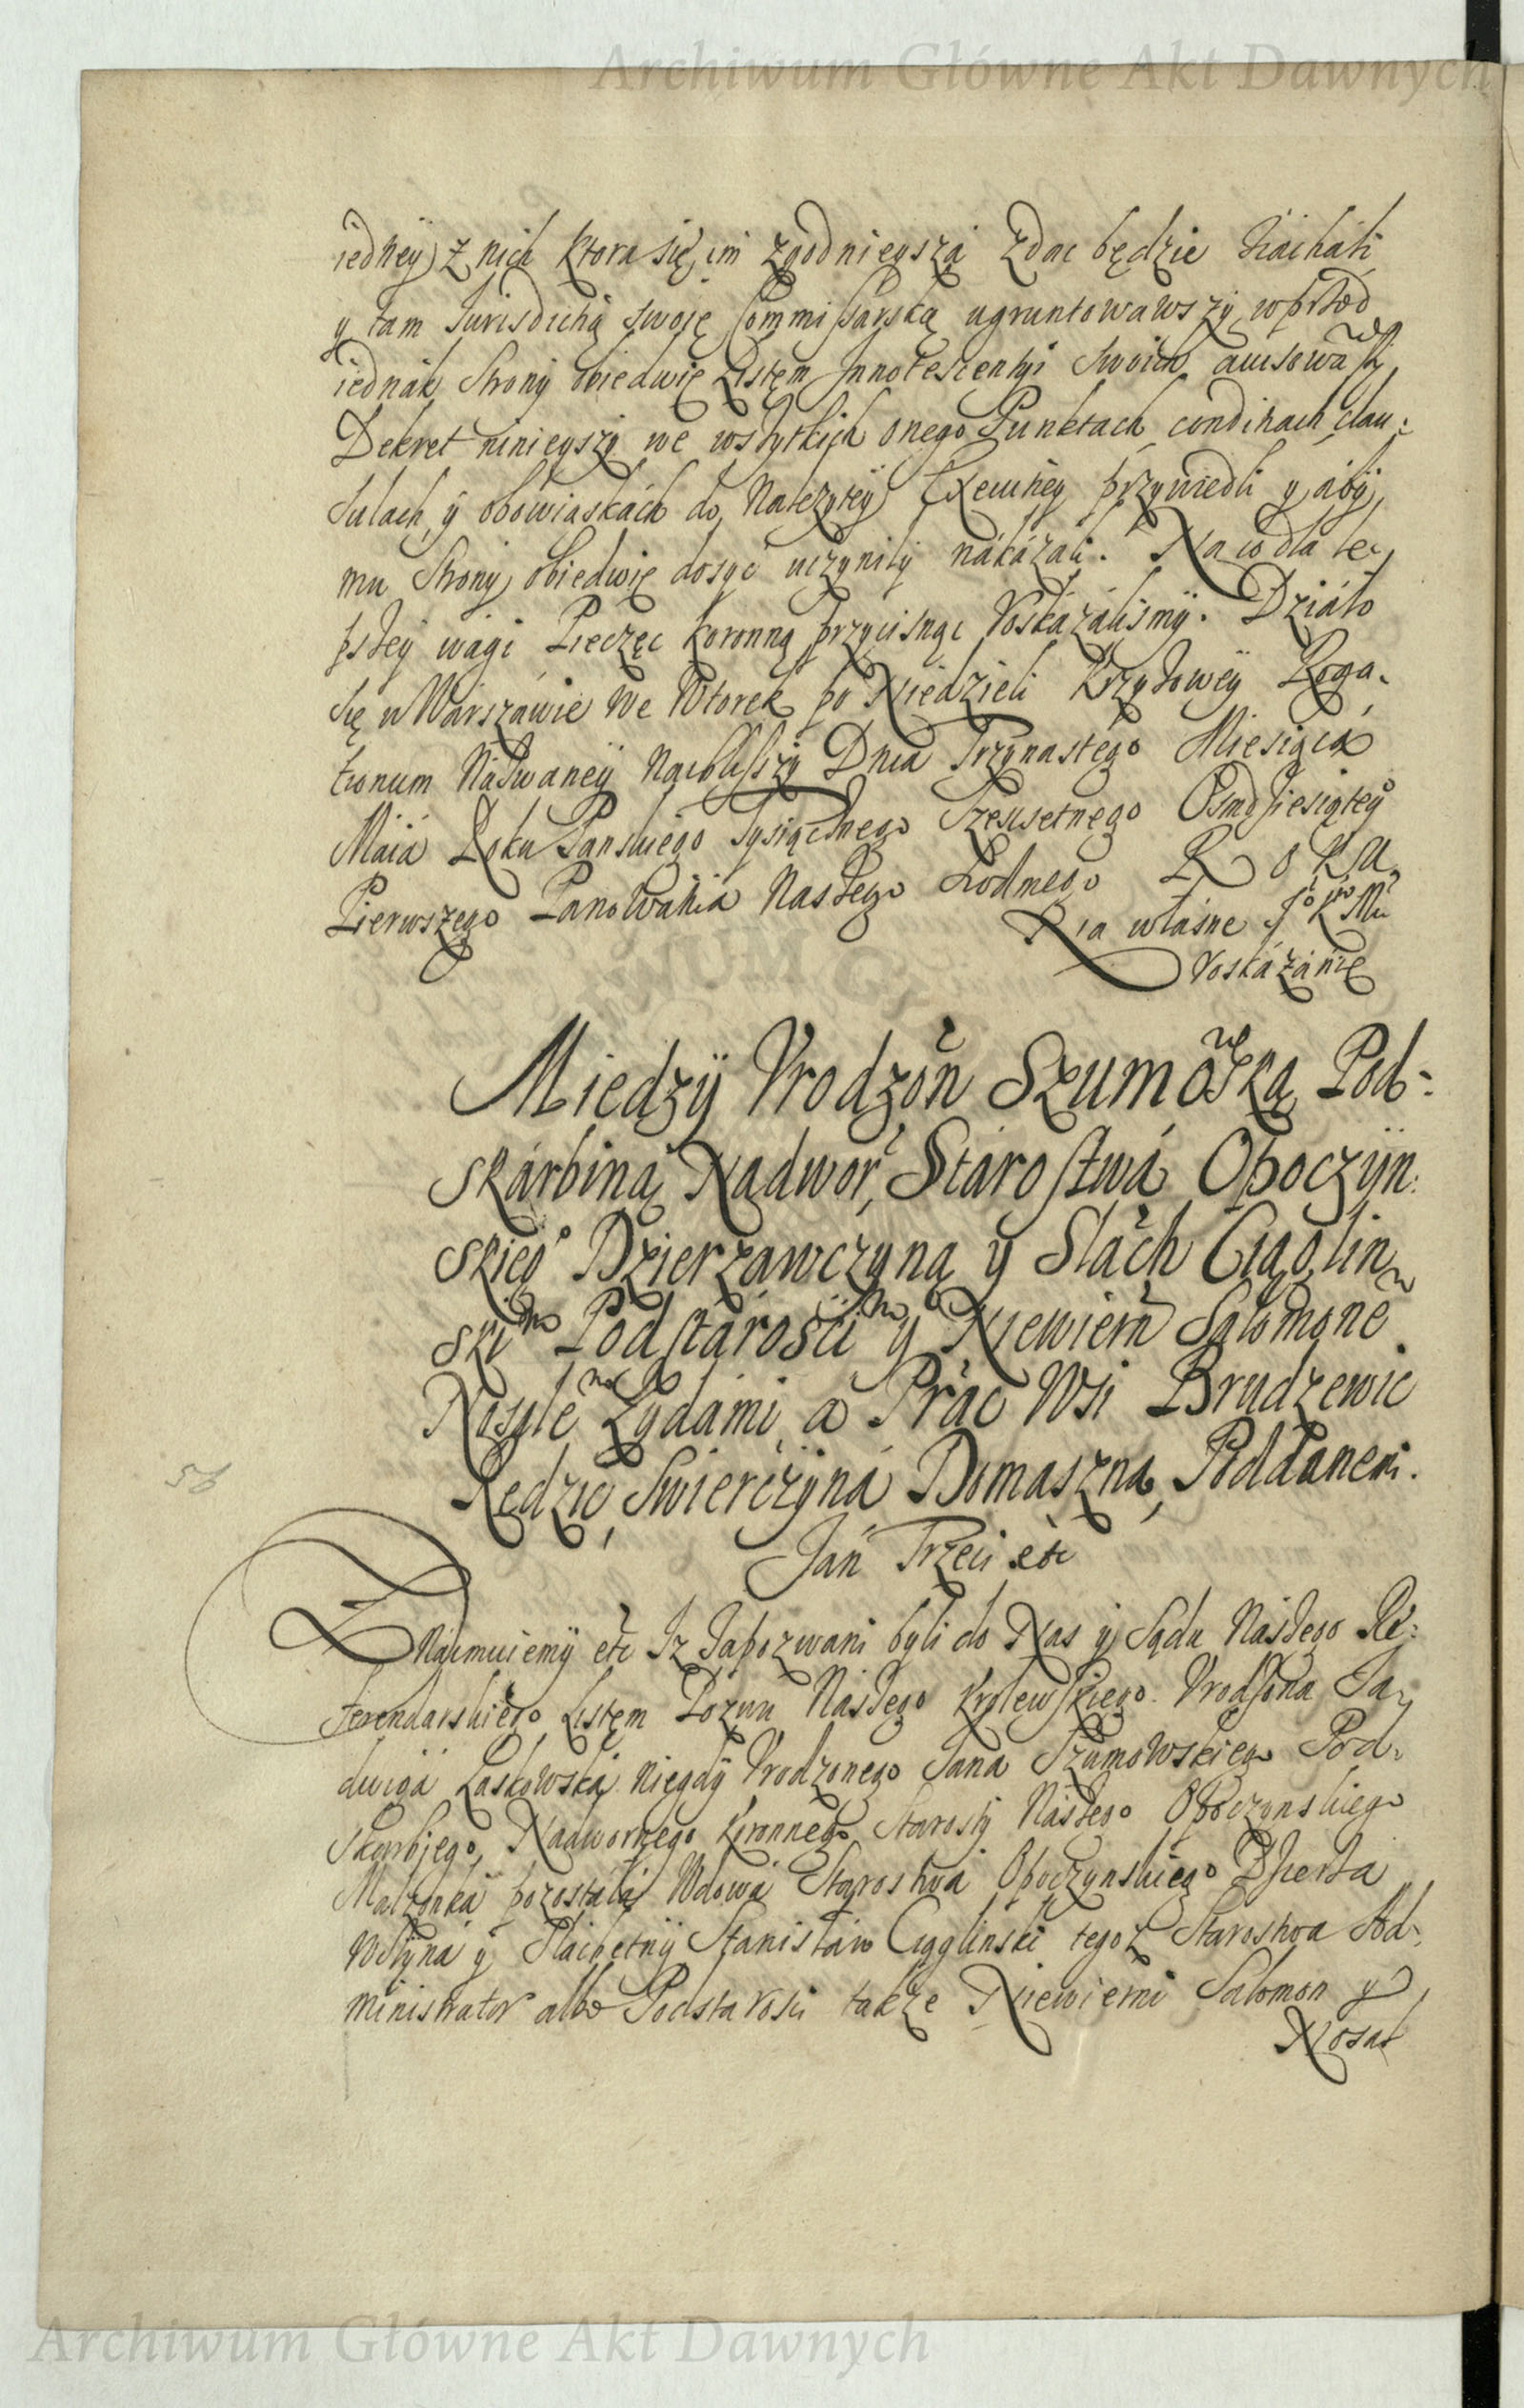 Archiwum Główne Akt Dawnych
iedney z nich ktora się im zgodnieysza zdac będzie ziachali
y tam Jurisdictią swoię Commissarską ugruntowawszy, wprzod
iednak Strony obiedwie Listem Innotescentyi Swoich awisowawszy
Dekret ninieyszy we wszytkich onego Punktach conditiach clau:
sulach y obowiąskach do należytey Exekutiey przywiedli y aby
mu Strony obiedwie dosyc uczyniły nakazali. Na co dla le:
pszey wagi Pieczęc koronną przycisnąc roskazalismy. Działo
się w Warszawie we Wtorek po Niedzieli Krzyżowey Roga:
tionum Nazwaney naybliższy Dnia Trzynastego Miesiąca
Maia Roku Panskiego Tysiącznego Szescsetnego Osmdziesiątego
Pierwszego Panowania Naszego Siodmego Roku
Na własne J° K° M°
Roskazanie
Miedzy Vrodzon Szumowską Pod=
skarbiną Nadwor, Starostwa Opoczyn:
skieg° Dzierzawczyną y Slach Ciąglin
skim Podstarościm y Niewiern Salomonem
Nosalem Zydami a Prac Wsi Brudzewic
Kędzic, Swierczyna Domaszna, Poddanemi.
56
Jan Trzeci etc
Znaimuiemy etc Iz Zapozwani byli do Nas y Sądu Naszego Re:
ferendarskiego Listem Pozwu Naszego Krolewskiego Vrodzona Ja:
dwiga Laskowska niegdy Vrodzonego Jana Szumowskiego Pod:
skarbiego Nadwornego Koronnego Starosty Naszego Opoczynskiego
Małzonka pozostała Wdowa Starostwa Opoczynskiego Dzierza
wczyna y Slachetny Stanisław Ciągliński tegoż Starostwa Ad:
ministrator albo Podstarosci także Niewierni Salomon y
Nosal
Archiwum Główne Akt Dawnych